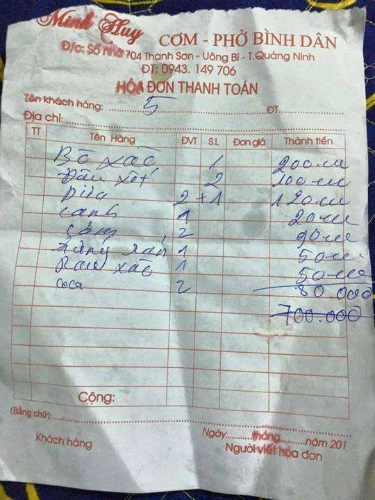 Minh Huy
CƠM - PHỞ BÌNH DÂN
Đ/c: Số nhà 704 Thanh Sơn - Uông Bí - T.Quảng Ninh
ĐT: 0943. 149 706
HÓA ĐƠN THANH TOÁN
Tên khách hàng: 5 ĐT
Địa chỉ:
TT Tên Hàng ĐVT S.L Đơn giá Thành tiền
Bò xào 1 200
Đậu xốt 2 100
2 + 1 120
canh 1 20
2 90
rán 1 50
Rau xào 1 50
coca 2 80.000
700.000
Cộng:
(Bằng chữ):
Ngày tháng năm 201
Khách hàng Người viết hóa đơn